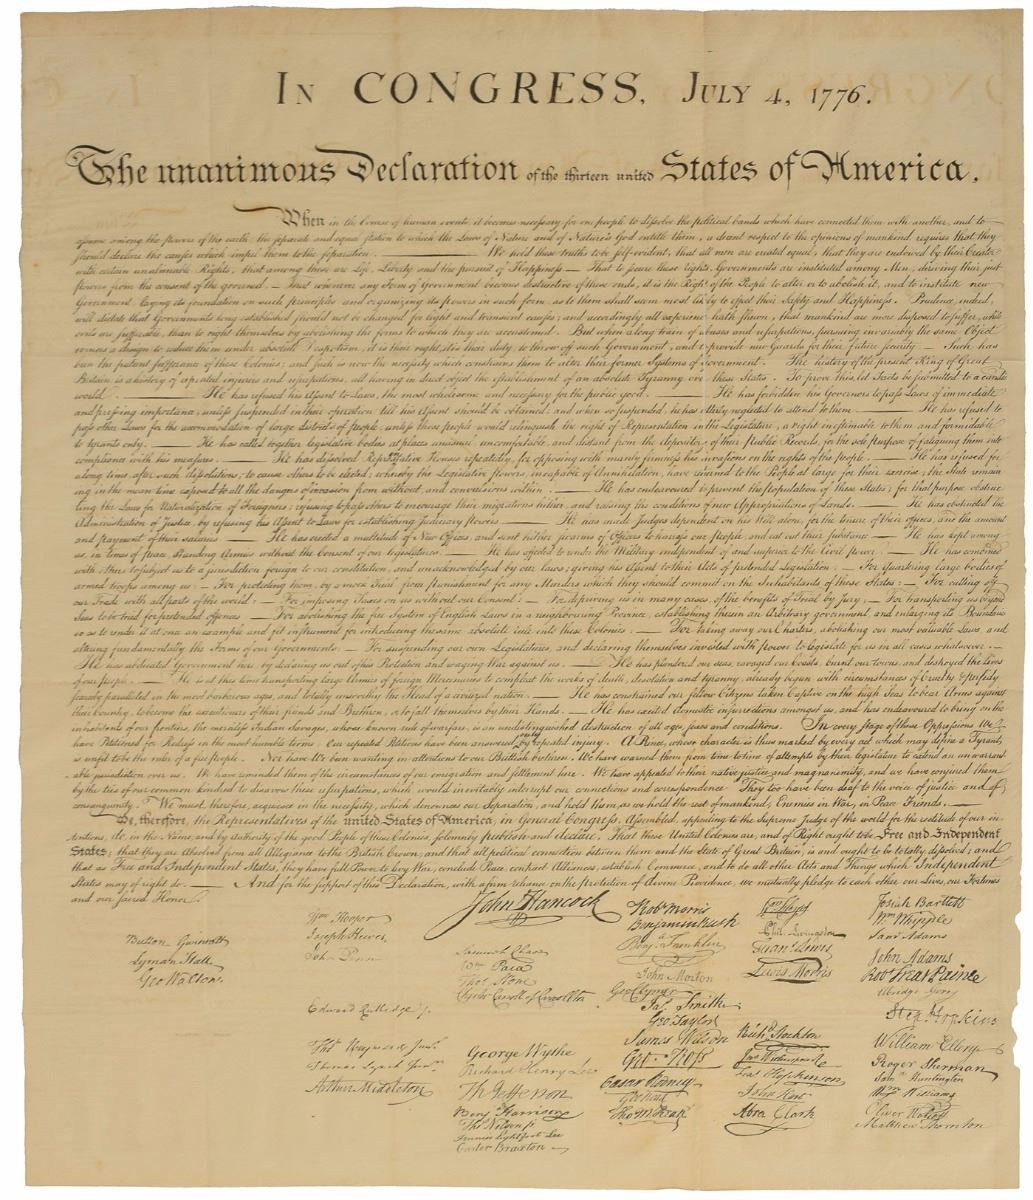 IN CONGRESS, JULY 4, 1776.
The unanimous Declaration of the thirteen united States of America,
When in the Course of human events, it becomes necessary for one people to dissolve the political bands which have connected them with another, and to
assume among the powers of the earth, the separate and equal station to which the Laws of Nature and of Nature's God entitle them, a decent respect to the opinions of mankind requires that they
should declare the causes which impel them to the separation. — We hold these truths to be self-evident, that all men are created equal, that they are endowed by their Creator
with certain unalienable Rights, that among these are Life, Liberty and the pursuit of Happiness — That to secure these rights, Governments are instituted among Men, deriving their just
powers from the consent of the governed — That whenever any Form of Government becomes destructive of these ends, it is the Right of the People to alter or to abolish it, and to institute new
Government, laying its foundation on such principles and organizing its powers in such form, as to them shall seem most likely to effect their Safety and Happiness. Prudence, indeed,
will dictate that Governments long established should not be changed for light and transient causes; and accordingly all experience hath shewn, that mankind are more disposed to suffer, while
evils are sufferable, than to right themselves by abolishing the forms to which they are accustomed. But when a long train of abuses and usurpations, pursuing invariably the same Object
evinces a design to reduce them under absolute Despotism, it is their right, it is their duty, to throw off such Government, and to provide new Guards for their future security. — Such has
been the patient sufferance of these Colonies; and such is now the necessity which constrains them to alter their former Systems of Government. The history of the present King of Great
Britain is a history of repeated injuries and usurpations, all having in direct object the establishment of an absolute Tyranny over these States. To prove this, let Facts be submitted to a candid
world. — He has refused his Assent to Laws, the most wholesome and necessary for the public good. — He has forbidden his Governors to pass Laws of immediate
and pressing importance, unless suspended in their operation till his Assent should be obtained; and when so suspended, he has utterly neglected to attend to them. — He has refused to
pass other Laws for the accommodation of large districts of people, unless those people would relinquish the right of Representation in the Legislature, a right inestimable to them and formidable
to tyrants only. — He has called together legislative bodies at places unusual, uncomfortable, and distant from the depository of their Public Records, for the sole purpose of fatiguing them into
compliance with his measures. — He has dissolved Representative Houses repeatedly, for opposing with manly firmness his invasions on the rights of the people. — He has refused for
a long time, after such dissolutions, to cause others to be elected; whereby the Legislative powers, incapable of Annihilation, have returned to the People at large for their exercise; the State remain
ing in the mean time exposed to all the dangers of invasion from without, and convulsions within. — He has endeavoured to prevent the population of these States; for that purpose obstruc
ting the Laws for Naturalization of Foreigners; refusing to pass others to encourage their migrations hither, and raising the conditions of new Appropriations of Lands. — He has obstructed the
Administration of Justice, by refusing his Assent to Laws for establishing Judiciary powers. — He has made Judges dependent on his Will alone, for the tenure of their offices, and the amount
and payment of their salaries. — He has erected a multitude of New Offices, and sent hither swarms of Officers to harrass our people, and eat out their substance. — He has kept among
us, in times of peace, Standing Armies without the Consent of our legislatures. — He has affected to render the Military independent of and superior to the Civil power. — He has combined
with others to subject us to a jurisdiction foreign to our constitution, and unacknowledged by our laws; giving his Assent to their Acts of pretended Legislation: — For Quartering large bodies of
armed troops among us: — For protecting them, by a mock Trial, from punishment for any Murders which they should commit on the Inhabitants of these States: — For cutting off
our Trade with all parts of the world: — For imposing Taxes on us without our Consent: — For depriving us in many cases, of the benefits of Trial by Jury: — For transporting us beyond
Seas to be tried for pretended offences — For abolishing the free System of English Laws in a neighbouring Province, establishing therein an Arbitrary government, and enlarging its Boundaries
so as to render it at once an example and fit instrument for introducing the same absolute rule into these Colonies: — For taking away our Charters, abolishing our most valuable Laws, and
altering fundamentally the Forms of our Governments: — For suspending our own Legislatures, and declaring themselves invested with power to legislate for us in all cases whatsoever. —
He has abdicated Government here, by declaring us out of his Protection and waging War against us. — He has plundered our seas, ravaged our Coasts, burnt our towns, and destroyed the lives
of our people. — He is at this time transporting large Armies of foreign Mercenaries to compleat the works of death, desolation and tyranny, already begun with circumstances of Cruelty & perfidy
scarcely paralleled in the most barbarous ages, and totally unworthy the Head of a civilized nation. — He has constrained our fellow Citizens taken Captive on the high Seas to bear Arms against
their Country, to become the executioners of their friends and Brethren, or to fall themselves by their Hands. — He has excited domestic insurrections amongst us, and has endeavoured to bring on the
inhabitants of our frontiers, the merciless Indian Savages, whose known rule of warfare, is an undistinguished destruction of all ages, sexes and conditions. In every stage of these Oppressions We
have Petitioned for Redress in the most humble terms: Our repeated Petitions have been answered only by repeated injury. A Prince, whose character is thus marked by every act which may define a Tyrant,
is unfit to be the ruler of a free people. Nor have We been wanting in attentions to our Brittish brethren. We have warned them from time to time of attempts by their legislature to extend an unwarrant
able jurisdiction over us. We have reminded them of the circumstances of our emigration and settlement here. We have appealed to their native justice and magnanimity, and we have conjured them
by the ties of our common kindred to disavow these usurpations, which, would inevitably interrupt our connections and correspondence They too have been deaf to the voice of justice and of
consanguinity. We must, therefore, acquiesce in the necessity, which denounces our Separation, and hold them, as we hold the rest of mankind, Enemies in War, in Peace Friends. —
We, therefore, the Representatives of the united States of America, in General Congress, Assembled, appealing to the Supreme Judge of the world for the rectitude of our in
tentions, do, in the Name, and by Authority of the good People of these Colonies, solemnly publish and declare, That these United Colonies are, and of Right ought to be Free and Independent
States; that they are Absolved from all Allegiance to the British Crown, and that all political connection between them and the State of Great Britain, is and ought to be totally dissolved; and
that as Free and Independent States, they have full Power to levy War, conclude Peace, contract Alliances, establish Commerce, and to do all other Acts and Things which Independent
States may of right do. — And for the support of this Declaration, with a firm reliance on the protection of divine Providence, we mutually pledge to each other our Lives, our Fortunes
and our sacred Honor.
Button Gwinnett
Lyman Hall
Geo Walton.
Wm Hooper
Joseph Hewes,
John Penn
Edward Rutledge /.
Thos Heyward Junr.
Thomas Lynch Junr.
Arthur Middleton
John Hancock
Samuel Chase
Wm Paca
Thos Stone
Charles Carroll of Carrollton
George Wythe
Richard Henry Lee
Th Jefferson
Benj Harrison
Thos Nelson jr.
Francis Lightfoot Lee
Carter Braxton
Robt Morris
Benjamin Rush
Benj. Franklin
John Morton
Geo Clymer
Jas. Smith
Geo. Taylor
James Wilson
Geo. Ross
Caesar Rodney
Geo Read
Tho M:Kean
Phil. Livingston
Frans. Lewis
Lewis Morris
Richd. Stockton
Jno Witherspoon
Fras. Hopkinson
John Hart
Abra Clark
Josiah Bartlett
Wm Whipple
Saml Adams
John Adams
Robt Treat Paine
Elbridge Gerry
Step. Hopkins
William Ellery
Roger Sherman
Saml Huntington
Wm Williams
Oliver Wolcott
Matthew Thornton